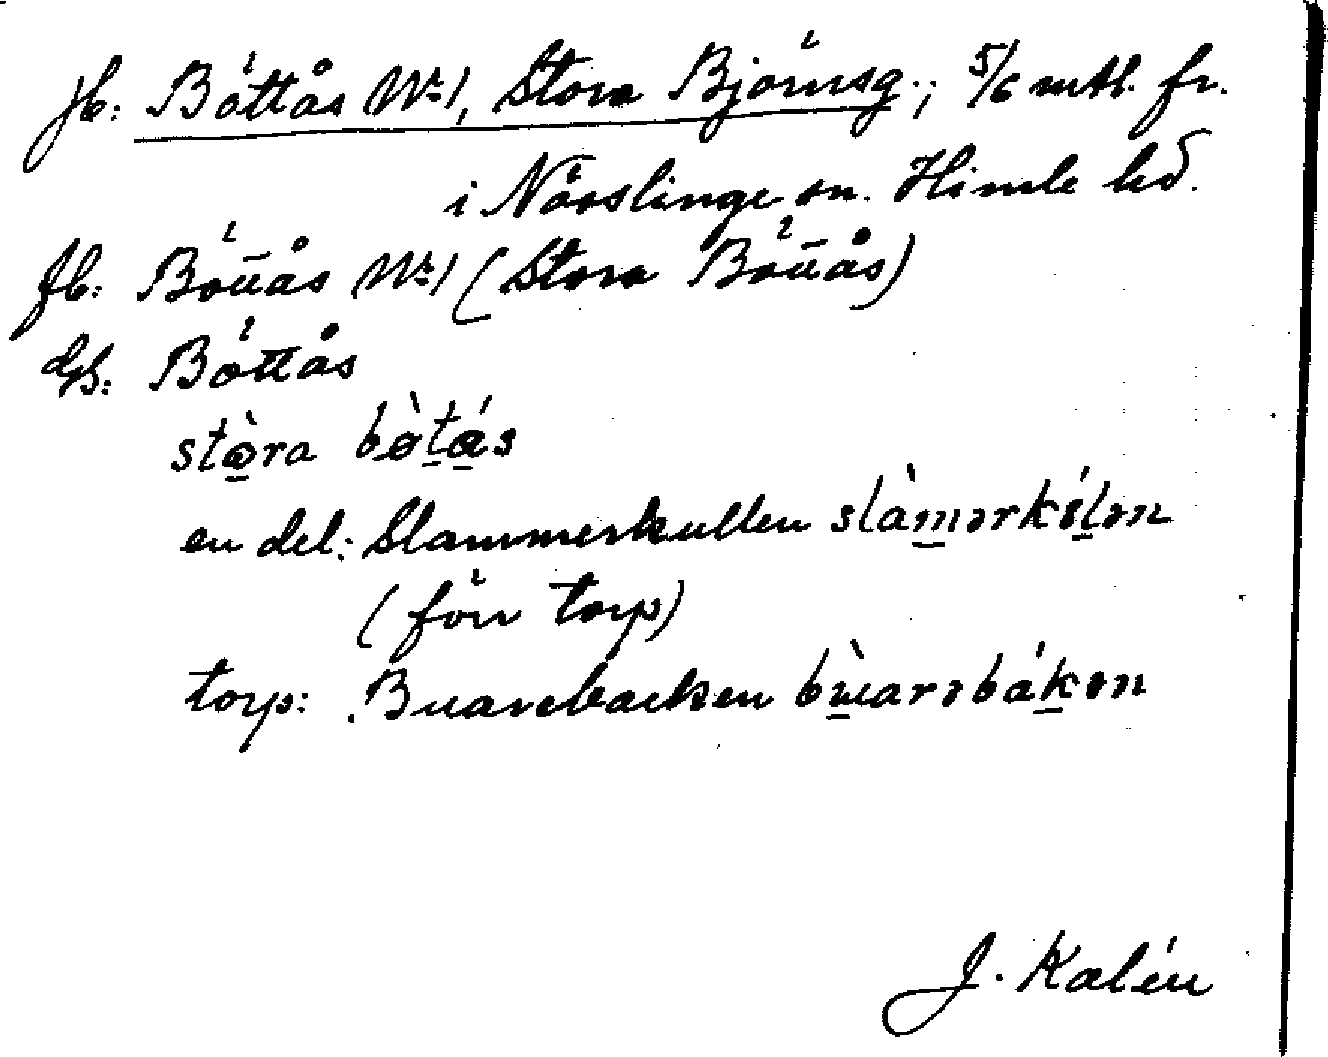 Jb: Böttås Nr 1, Stora Björnsg.; 5/6 mtl. fr.
i Nösslinge sn. Himle hd.
fb: Böttås Nr 1 (Stora Böttås)
Gs: Böttås
stò̱ra bø̀ṯa̱ś
en del: Slammerkullen slàm̱ərkúḻən
(förr torp)
torp: Buarebacken bù̱arəbáḵən
J. Kalén